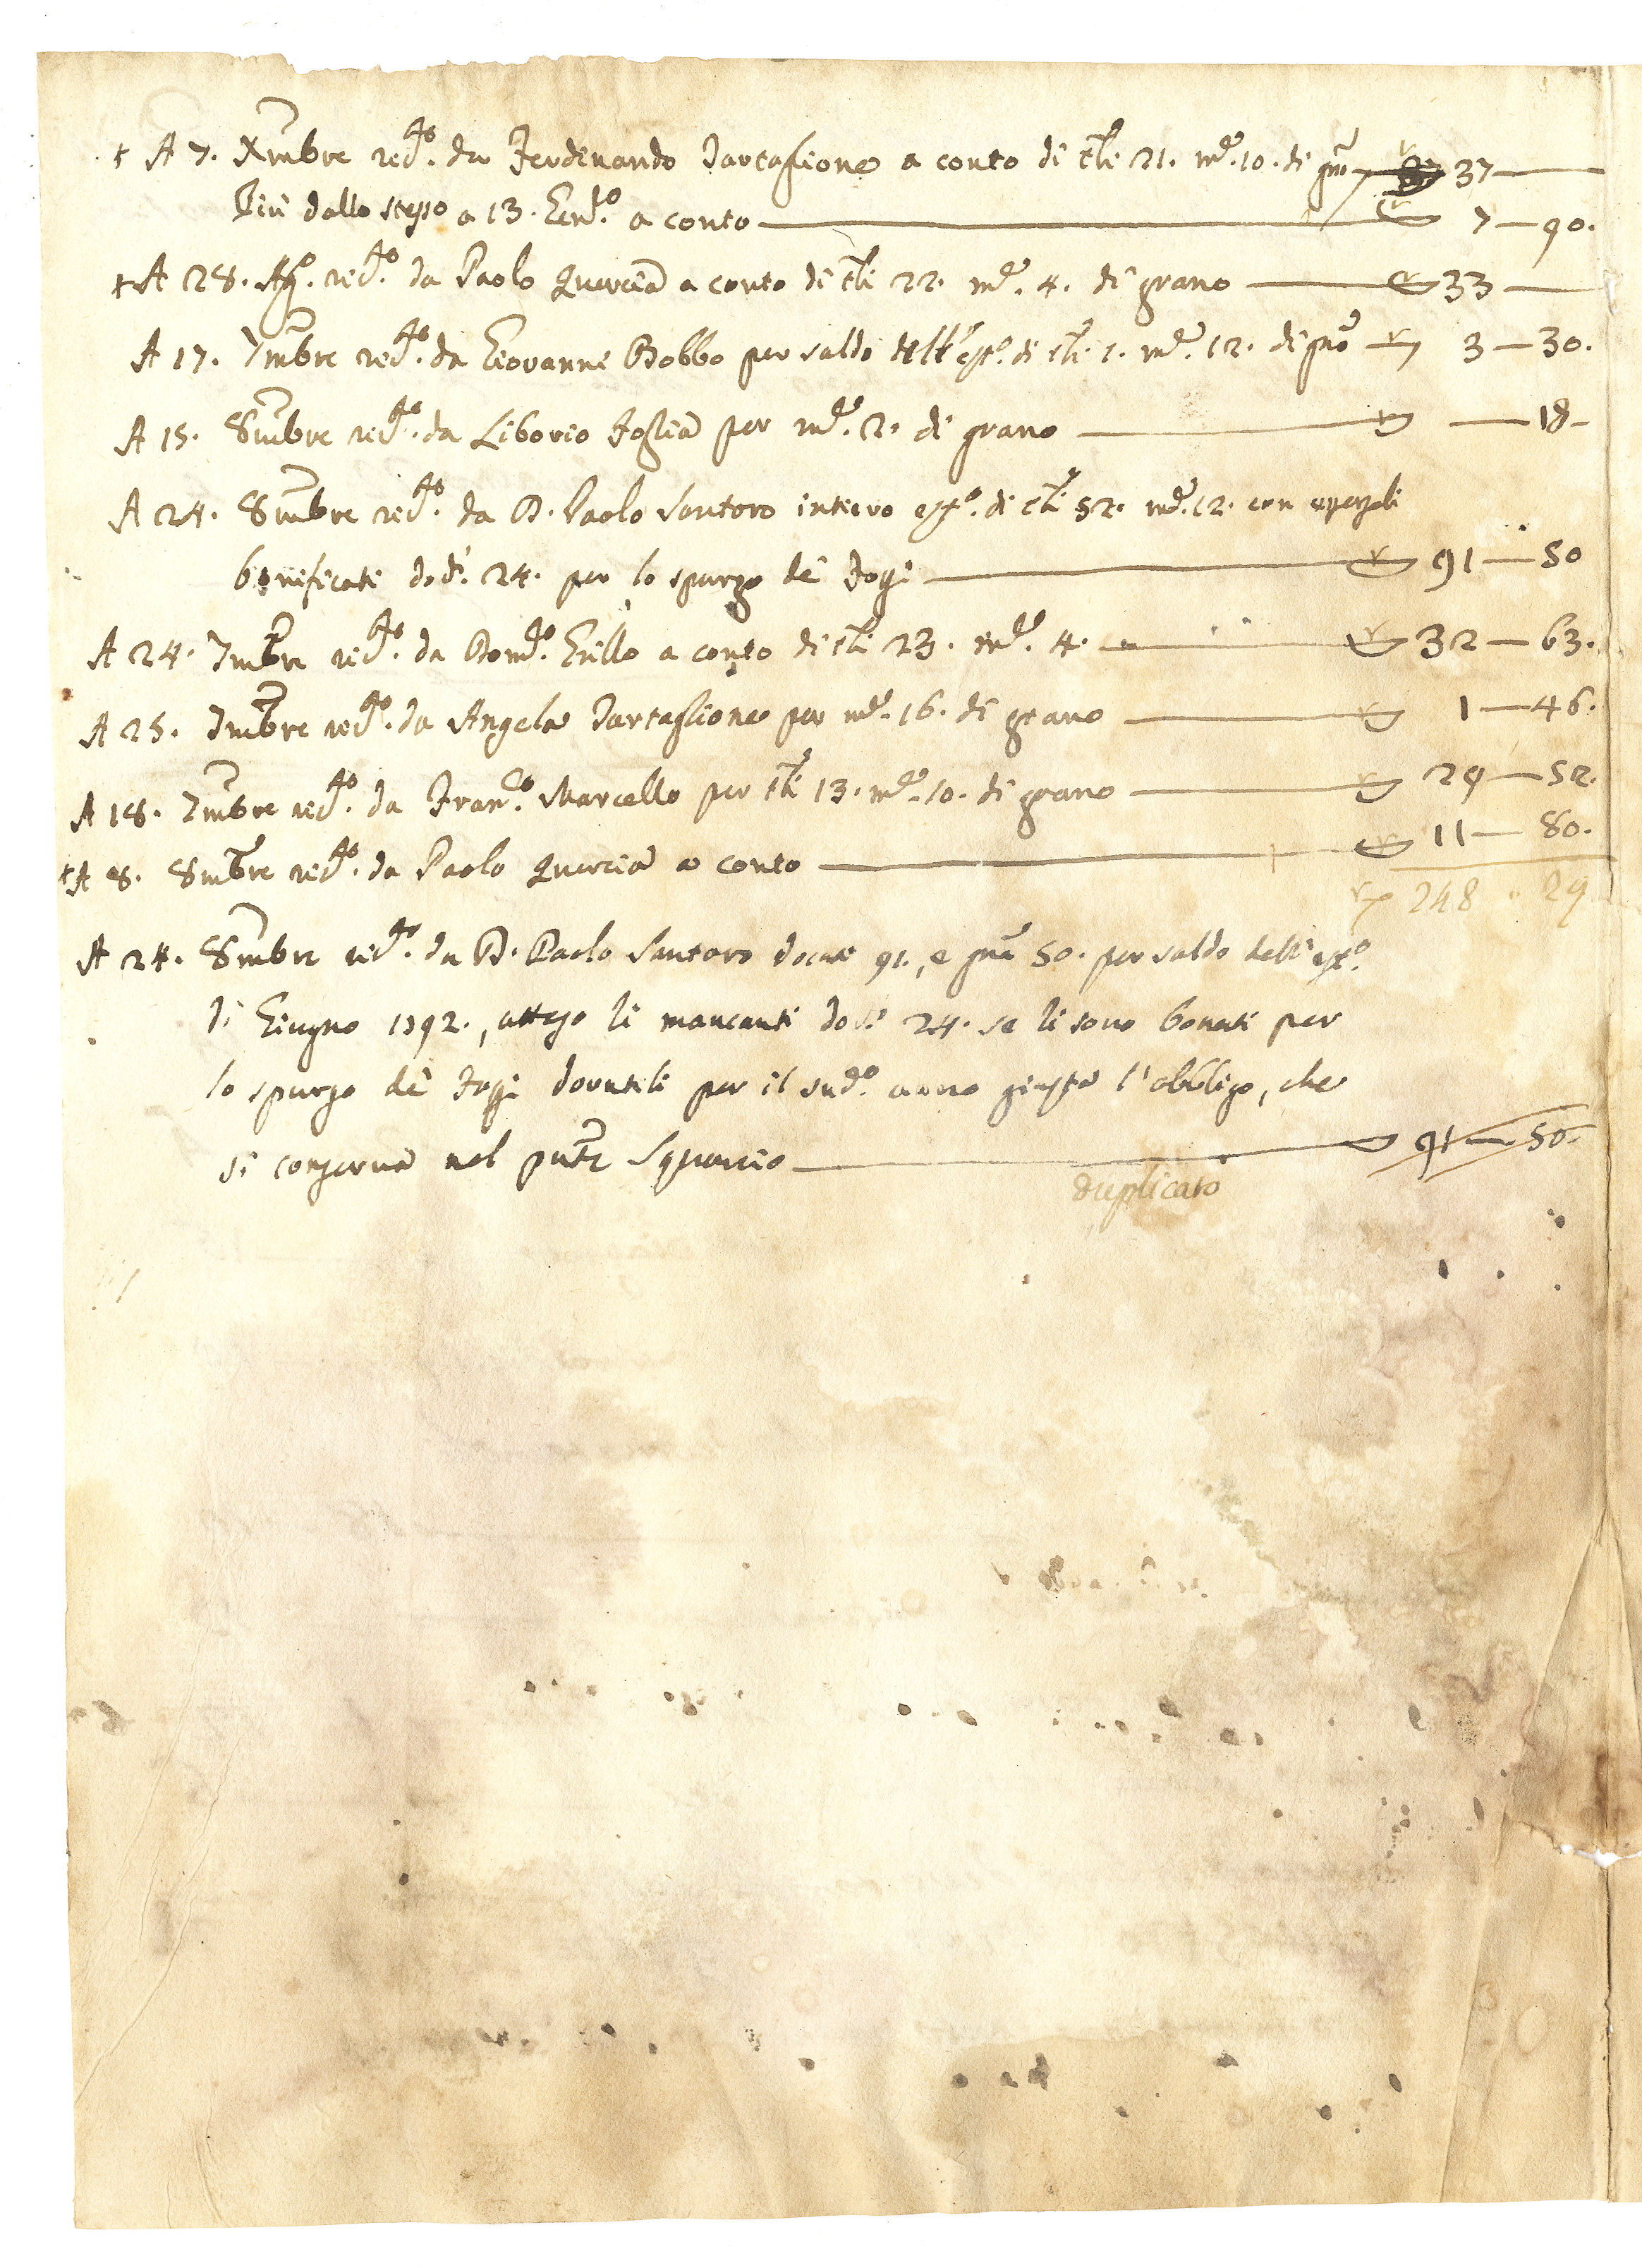 + A 7. Xmbre ric.to da Ferdinando Tartaglione a conto di t.li 21. m.e 10. di gno 37 —
Più dallo stesso a 13. Gen.o a conto — 7 — 90.
+ A 28. Ag.o ric.to da Paolo Quercia a conto di t.li 22. m.e 4. di grano — 33 —
A 17. 7mbre ric.to da Giovanne Bobbo per saldo dell' est.o di t.li 1. m.e 12. di gno 3 — 30.
A 15. 8mbre ric.to da Liborio Foglia per m.e 2. di grano — — 18 -
A 24. 8mbre ric.to da D. Paolo Santoro intiero est.o di t.li 52. m.e 12. con essersoli
bonificati doc.i 24. per lo spurgo dè Fossi — 91 — 50
A 24. 7mbre ric.to da Dom.co Grillo a conto di t.li 23. m.e 4. — 32 — 63.
A 25. 7mbre ric.to da Angela Tartaglione per m.e 16. di grano — 1 — 46.
A 18. 7mbre ric.to da Fran.co Marcello per t.li 13. m.e 10. di grano — 29 — 52.
+ A 8. 8mbre ric.to da Paolo Quercia a conto — 11 — 80.
248 .. 29
A 24. 8mbre ric.to da D. Paolo Santoro docati 91., e gna 50. per saldo dell'est.o
di Giugno 1792., atteso li mancanti doc.i 24. se li sono bonati per
lo spurgo dè Fossi dovutili per il sud.o anno giusta l'obbligo, che
si conserva nel pnte Squarcio — 91 — 50.
duplicato